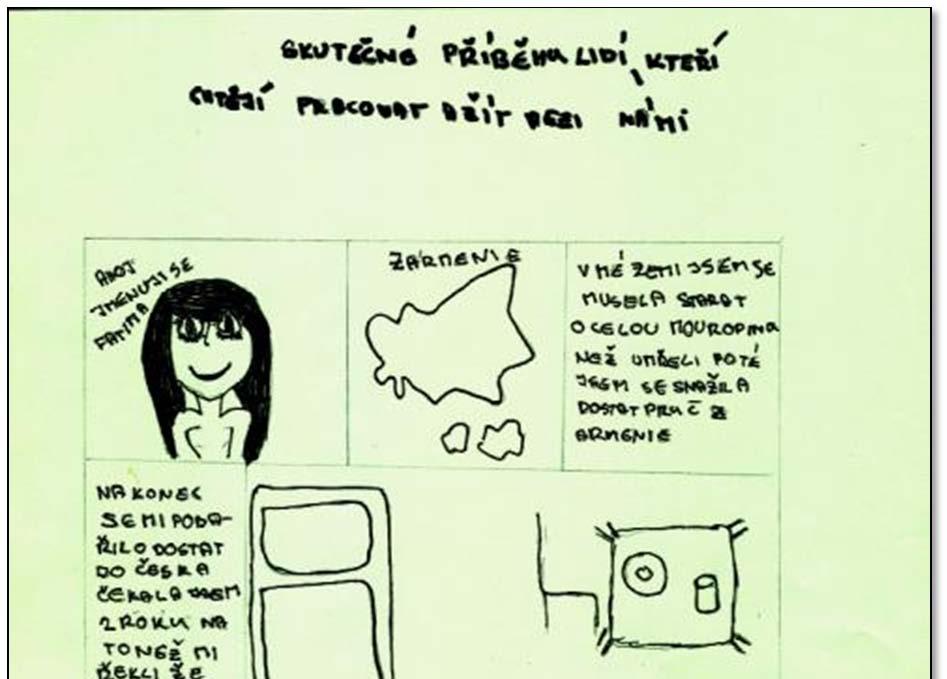 SKUTEČNÉ PŘÍBĚHU LIDÍ, KTEŘÍ
CHTĚJÍ PRACOVAT A ŽÍT MEZI NÁMI
AHOJ
JMENUJI SE
FATIMA
Z ARMENIE
V MÉ ZEMI JSEM SE
MUSELA STARAT
O CELOU MOU RODINA
NEŽ UMŘELI POTÉ
JSEM SE SNAŽILA
DOSTAT PRUČ Z
ARMENIE
NA KONEC
SE MI PODA-
ŘILO DOSTAT
DO ČESKA
ČEKALA JSEM
2 ROKU NA
TO NEŽ MI
ŘEKLI ŽE